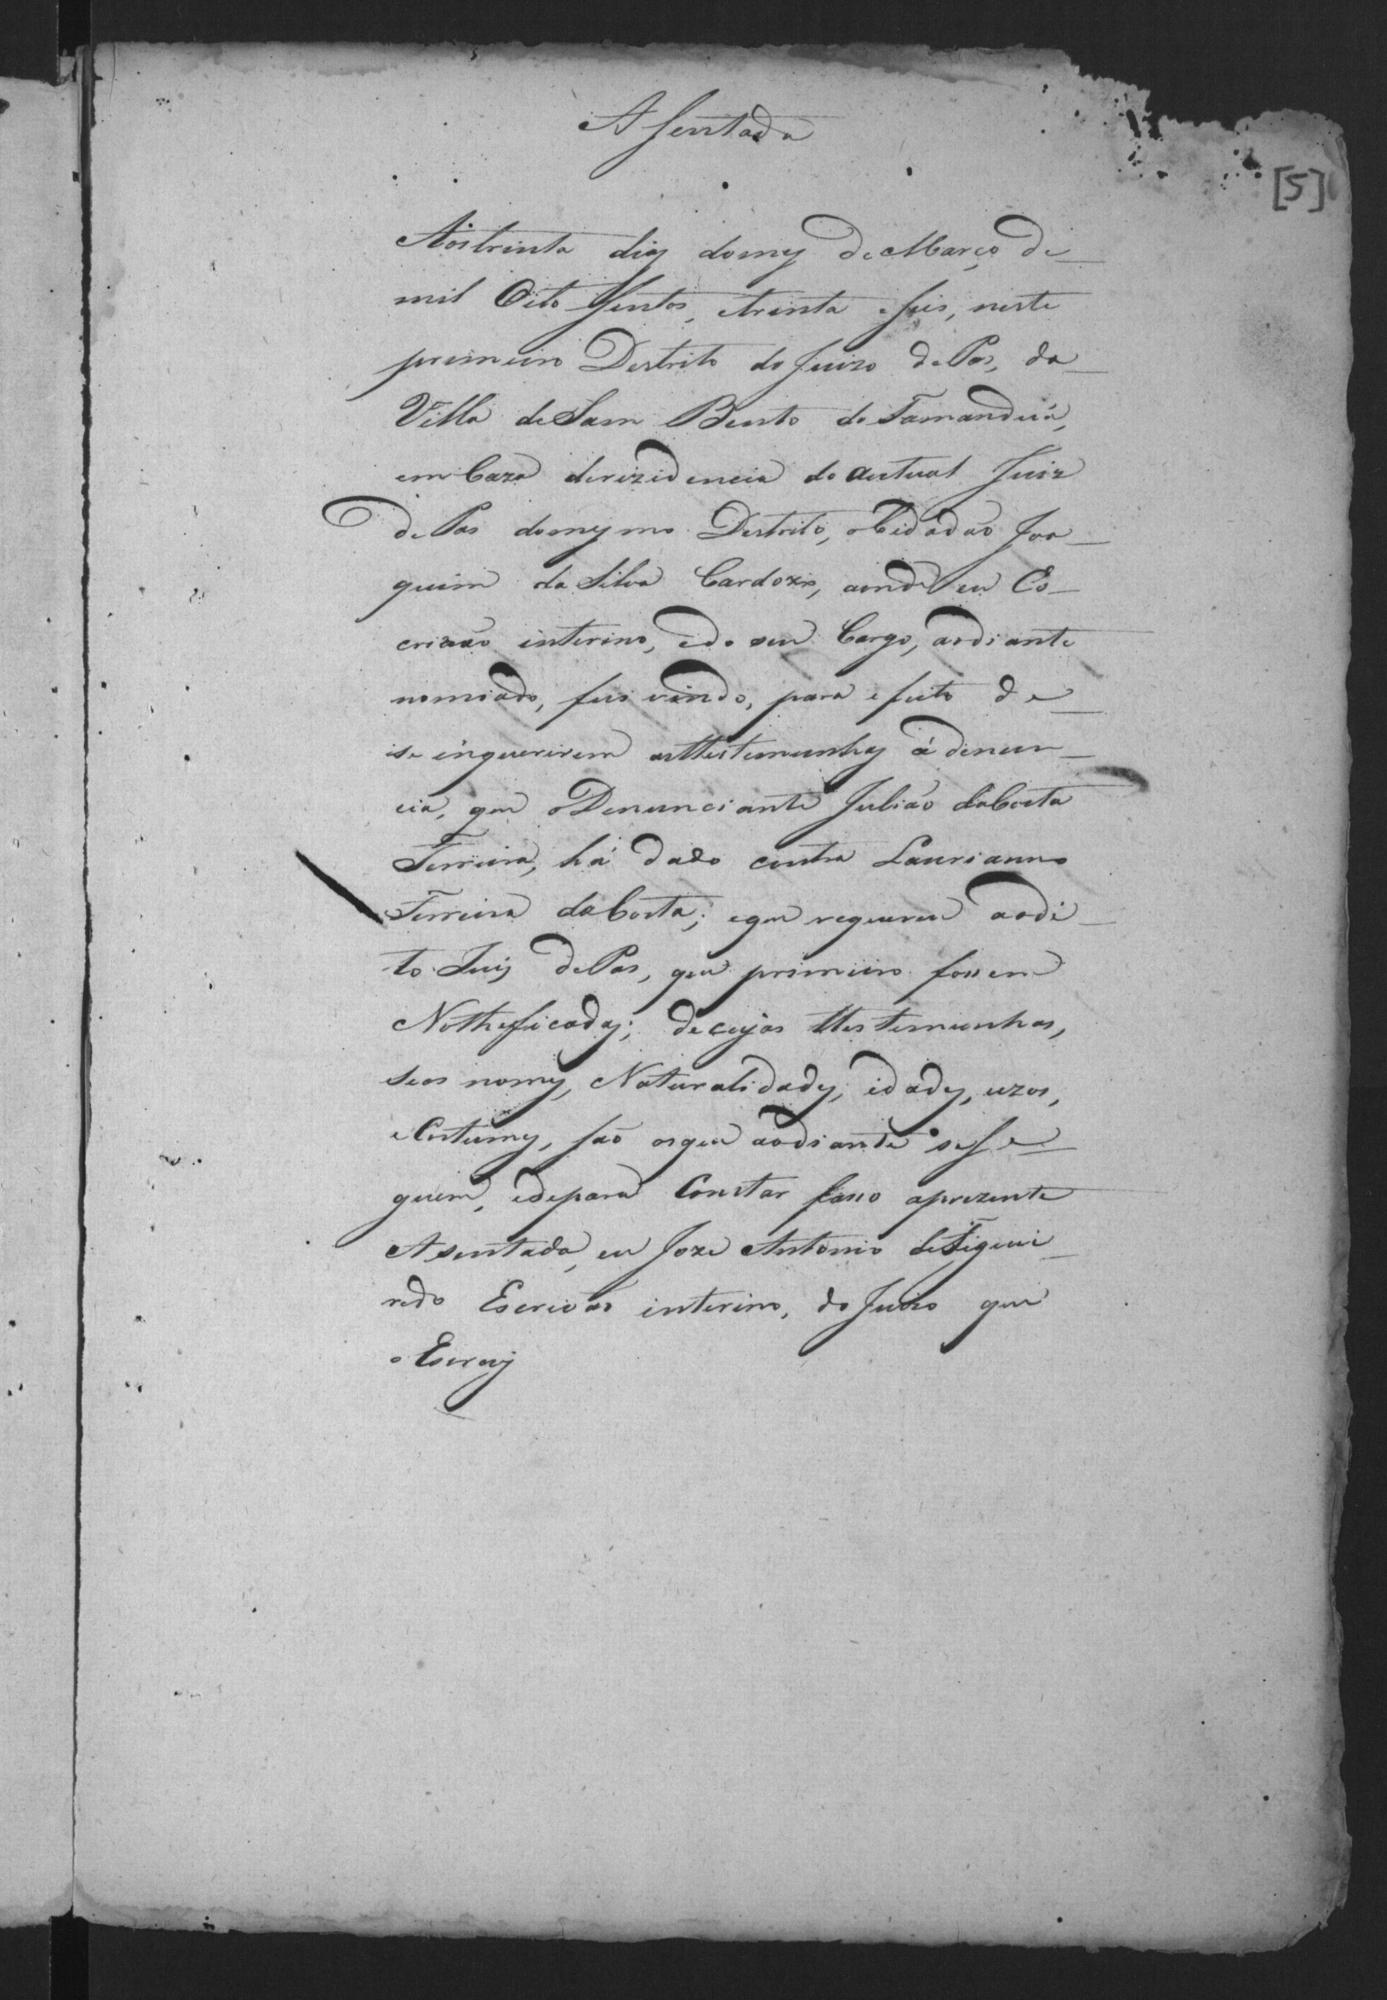 Asentada
[5]
Aos trinta dias do mes de Março de
mil Oito Sentos, e trinta e seis, neste
premeiro Destrito do Juizo de Pas, da
Villa de Sam Bento do Tamanduá,
em Caza derezidencia do autual Juiz
de Pas domesmo Destrito, o Cidadão Joa
quim da Silva Cardozo, aonde eu Es
crivão interino, edo seu Cargo, aodiante
nomiado, fui vindo, para efeito de
se inquerirem asttestemunhas á denun
cia, que o Denunciante Julião daCosta
Ferreira, há dado contra Laurianno
Ferreira daCosta; eque requereu aodi
to Juis de Pas, que primeiro fossem
Notheficadas; de cujas ttestemunhas,
seos nomes, Naturalidades, idades, uzos,
e Custumes, são osque aodiante se se
guem, edepara Constar fasso aprezente
Asentada, eu Joze Antonio deFiguei
redo Escrivão interino, do Juizo que
o Escrevy